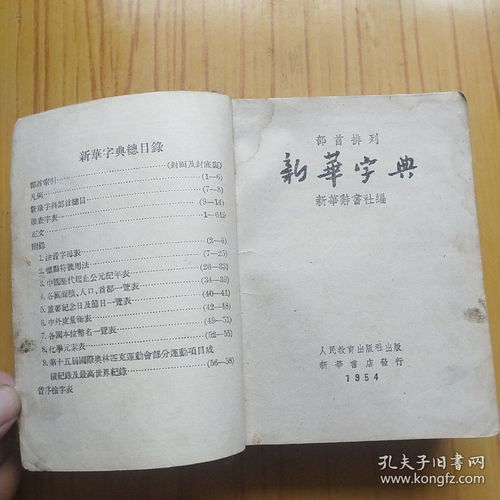 新華字典總目錄
部首索引 (封面及封底裏)
凡例 (1—6)
新華字典部首總目 (7—8)
難查字表 (9—14)
正文 1—619
附錄
1.注音字母表 (2—6)
2.標點符號用法 (7—25)
3.中國歷代起止公元紀年表 (26—33)
4.各國面積、人口、首都一覽表 (34—39)
5.重要紀念日及節日一覽表 (40—41)
6.中外度量衡表 (42—48)
7.各國本位幣名一覽表 (49—51)
8.化學元素表 (52—55)
9.第十五屆國際奧林匹克運動會部分運動項目成
績紀錄及最高世界紀錄 (56—58)
音序檢字表
部首排列
新華字典
新華辭書社編
人民教育出版社出版
新華書店發行
1954
孔夫子旧书网
www.kongfz.com